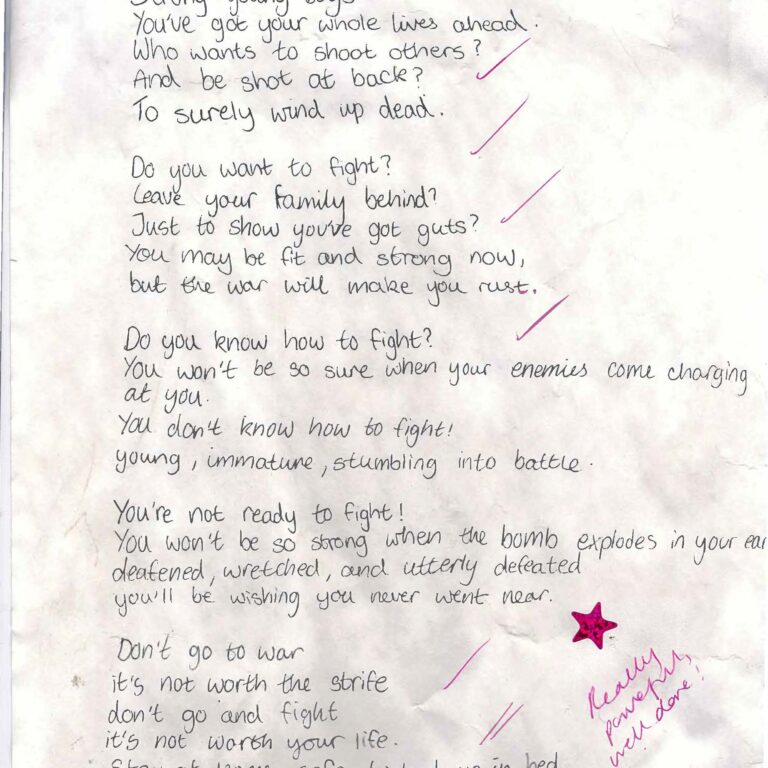 Strong young boys
You've got your whole lives ahead.
Who wants to shoot others?
And be shot at back?
To surely wind up dead.
Do you want to fight?
Leave your family behind?
Just to show you've got guts?
You may be fit and strong now,
but the war will make you rust.
Do you know how to fight?
You won't be so sure when your enemies come charging
at you.
You don't know how to fight!
young, immature, stumbling into battle.
You're not ready to fight!
You won't be so strong when the bomb explodes in your ear
deafened, wretched, and utterly defeated
you'll be wishing you never went near.
Don't go to war
it's not worth the strife
don't go and fight
it's not worth your life.
Really
powerful,
well done!